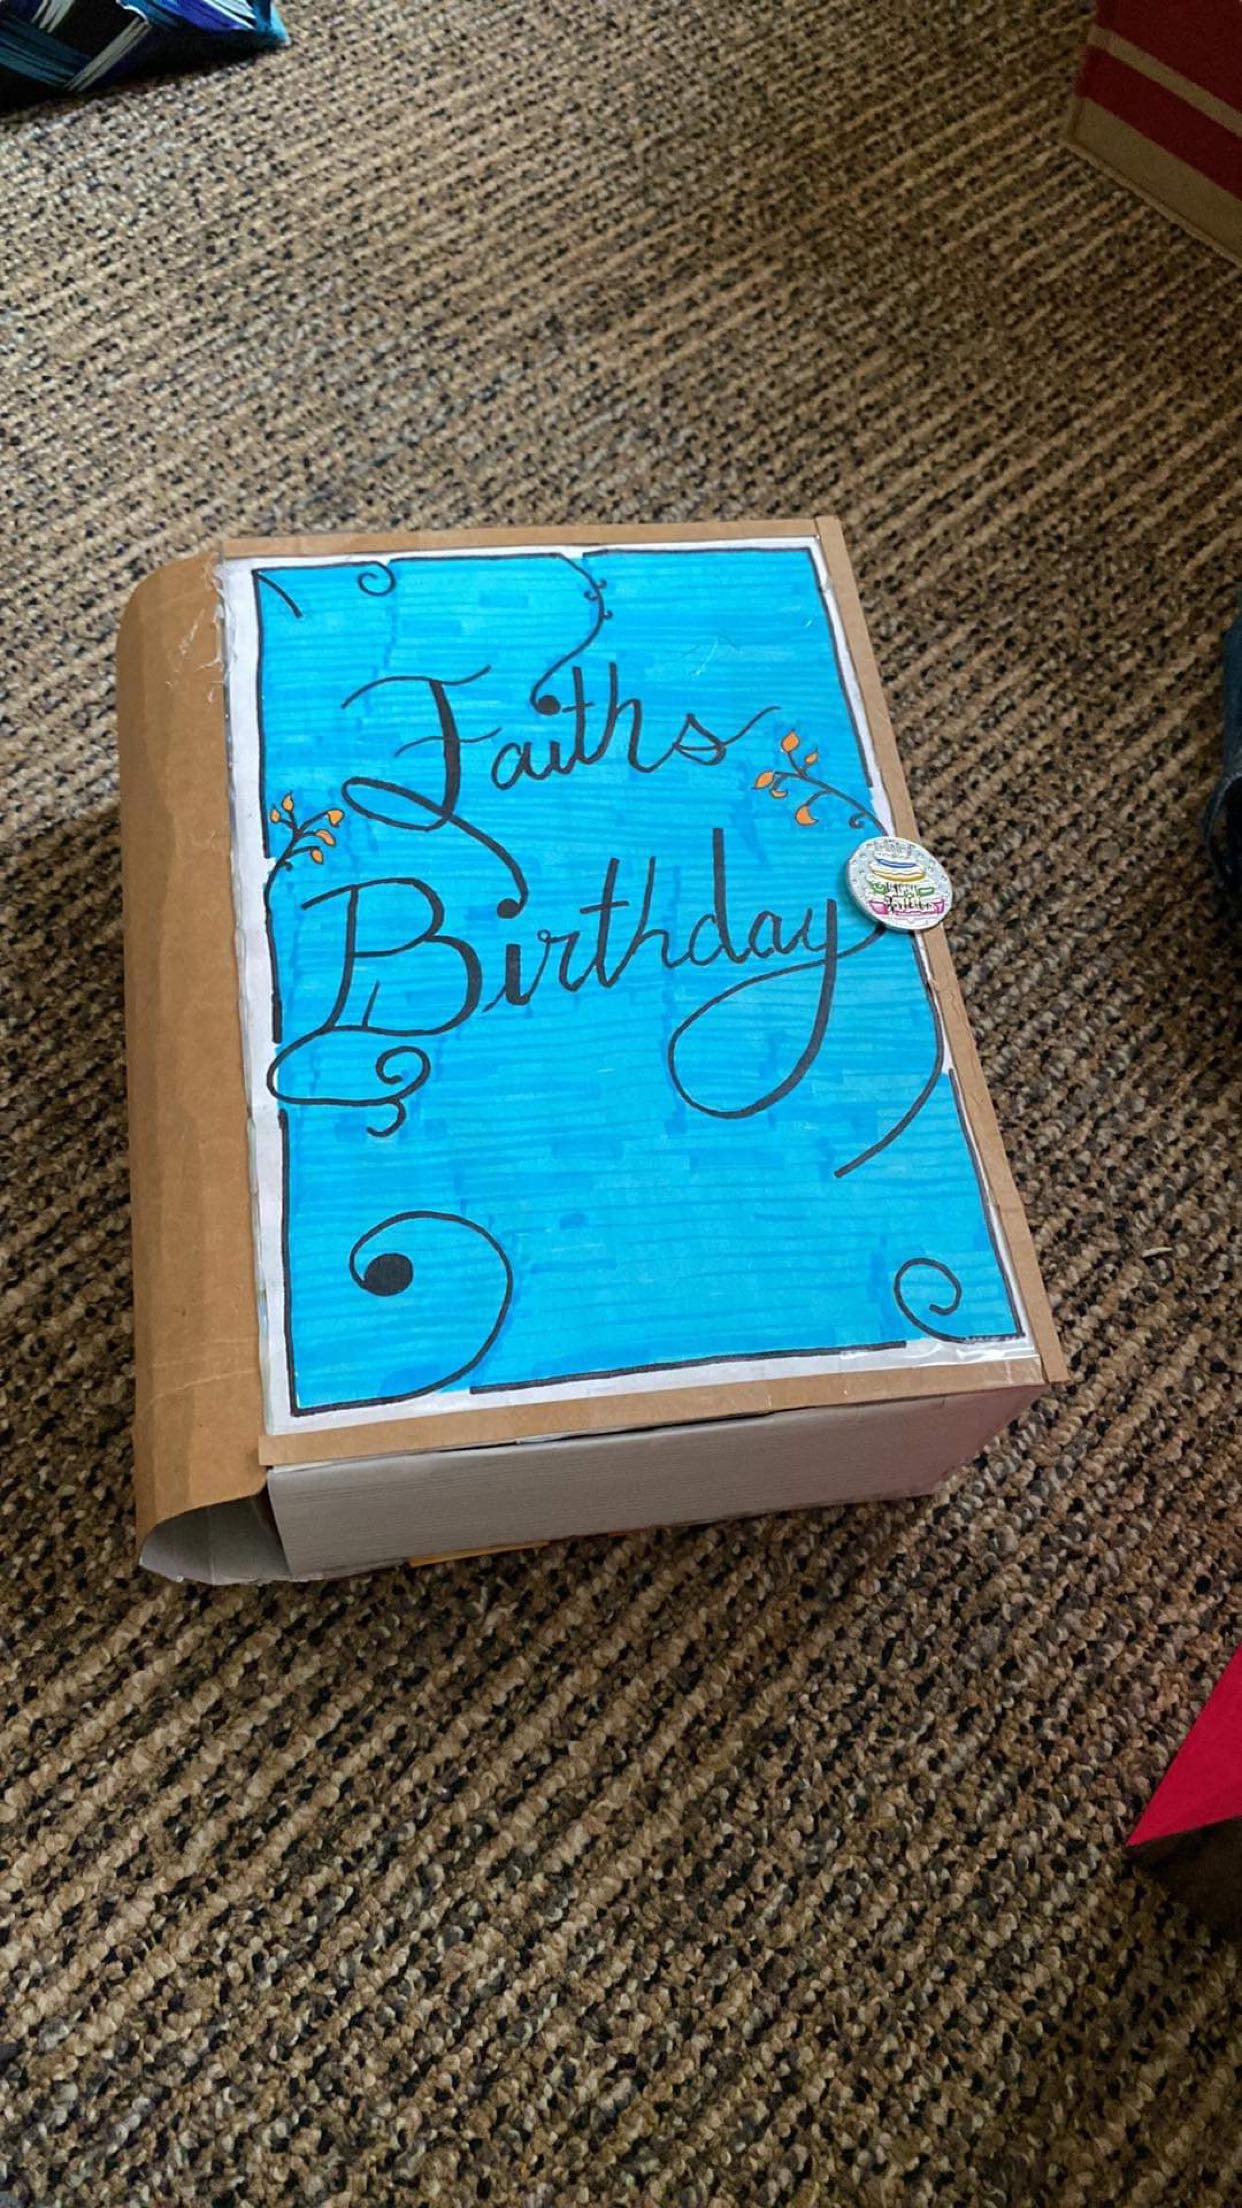 Faiths
Birthday